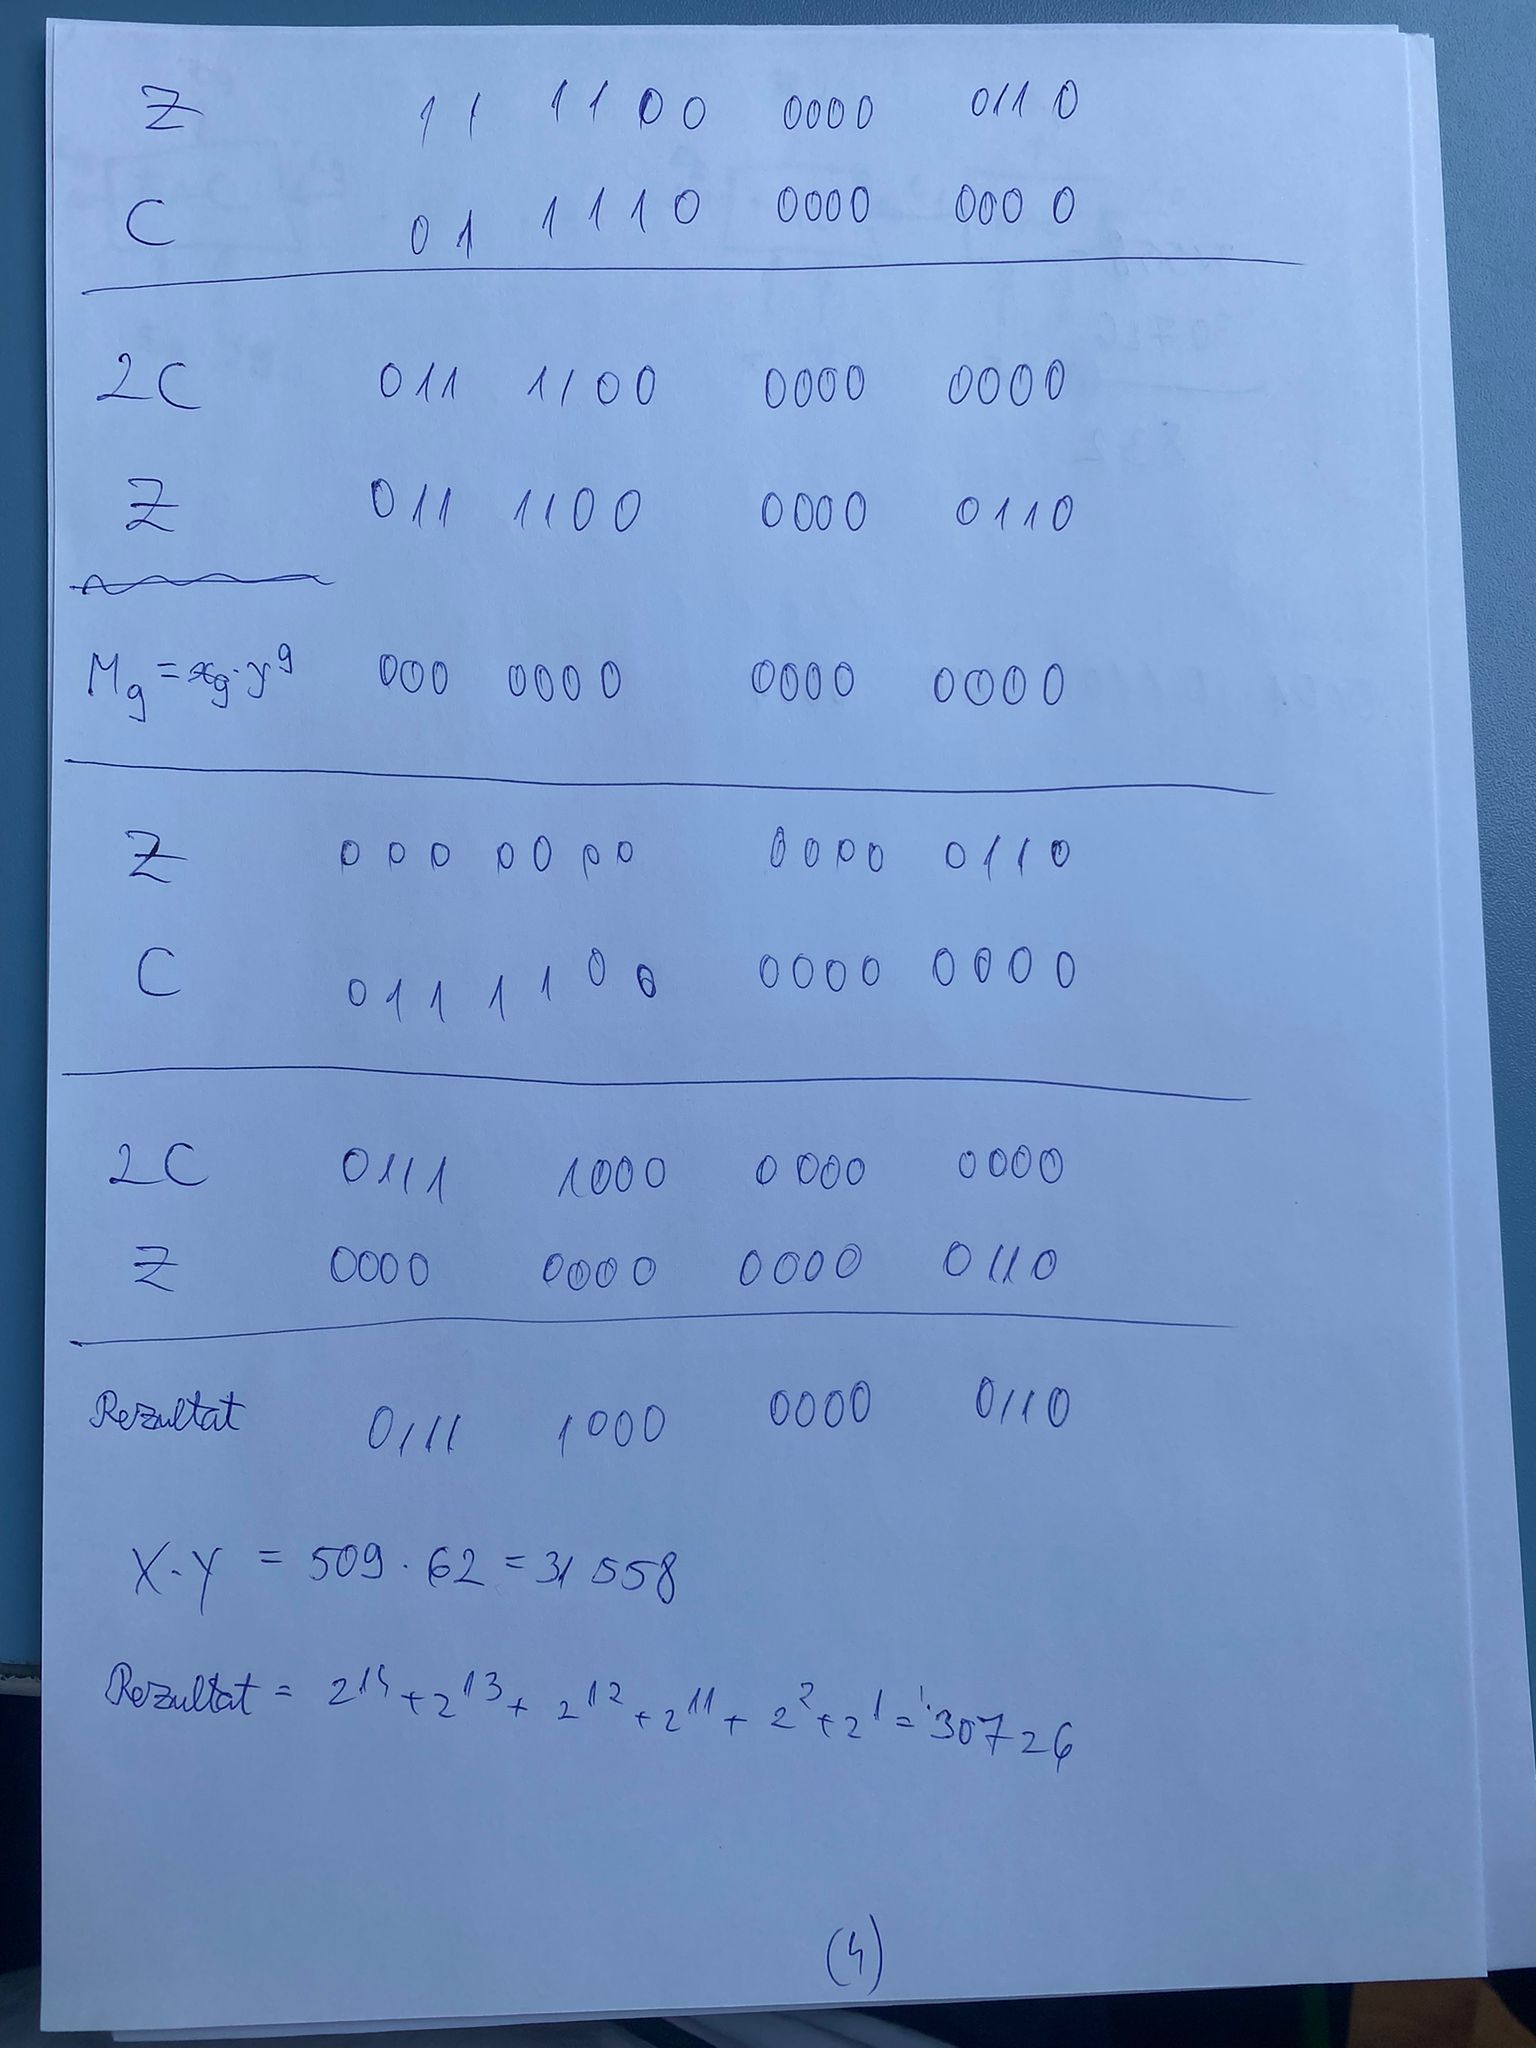 Z 11 1100 0000 0110
C 01 1110 0000 0000
2C 011 1100 0000 0000
Z 011 1100 0000 0110
M9 = x9·y9 000 0000 0000 0000
Z 000 0000 0000 0110
C 011 1100 0000 0000
2C 0111 1000 0000 0000
Z 0000 0000 0000 0110
Rezultat 0111 1000 0000 0110
X·Y = 509·62 = 31558
Rezultat = 2^14 + 2^13 + 2^12 + 2^11 + 2^2 + 2^1 = 30726
(4)